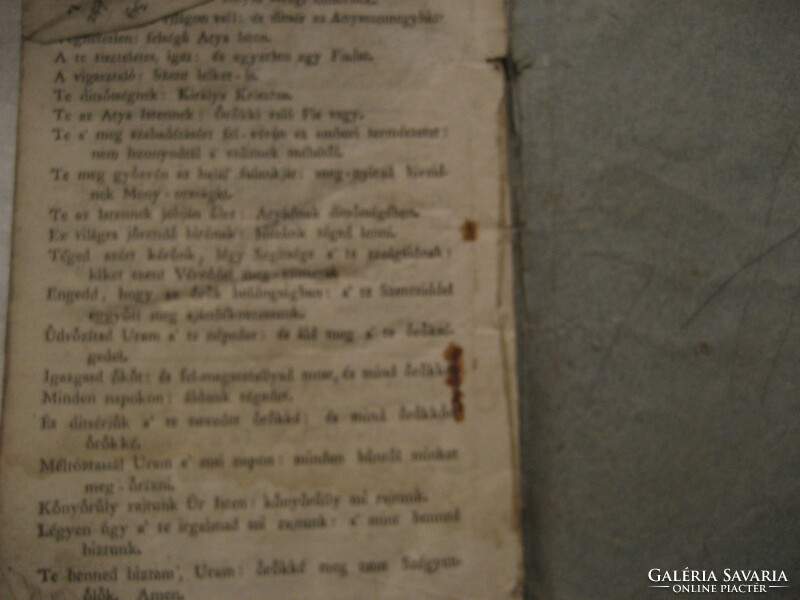 világon vall: és ditsér az Anyaszentegyház
Véghetetlen: felségű Atya Isten.
A te tiszteletes, igaz: és egyetlen egy Fiadat.
A vigasztaló: Szent lelket-is.
Te ditsőségnek: Királya Krisztus.
Te az Atya Istennek: őrökké való Fia vagy.
Te a' meg szabadításért fel-vévén az emberi természetet:
nem iszonyodtál a' szűznek méhétől.
Te meg győzvén az halál fulánkját: meg-nyitád híveid-
nek Meny-országát.
Te az Istennek jobján űlsz: Atyádnak ditsőségében.
Ez világra jövendő bírónak: hitetik téged lenni.
Téged azért kérünk, légy Segítsége a' te szolgáidnak:
kiket szent Véreddel meg-váltottál
Engedd, hogy az őrök boldogságban: a' te Szenteiddel
eggyütt meg ajándékoztassunk.
Űdvőzítsd Uram a' te népedet: és áld meg a' te őrőksé-
gedet.
Igazgasd őkőt: és fel-magasztallyad most, és mind őrőkké
Minden napokon: áldunk tégedet.
És ditsérjük a' te nevedet őrőkké: és mind őrőkkőn
őrőkké.
Méltóztassál Uram a' mai napon: minden bűntől minket
meg-őrizni.
Kőnyőrűly rajtunk Úr Isten: kőnyőrűlly mi rajtunk.
Légyen úgy a' te irgalmad mi rajtunk: a' mint benned
bíztunk.
Te benned bíztam, Uram: őrőkké meg nem Szégyen-
űlők. Amen.
GALÉRIA SAVARIA
ONLINE PIACTÉR